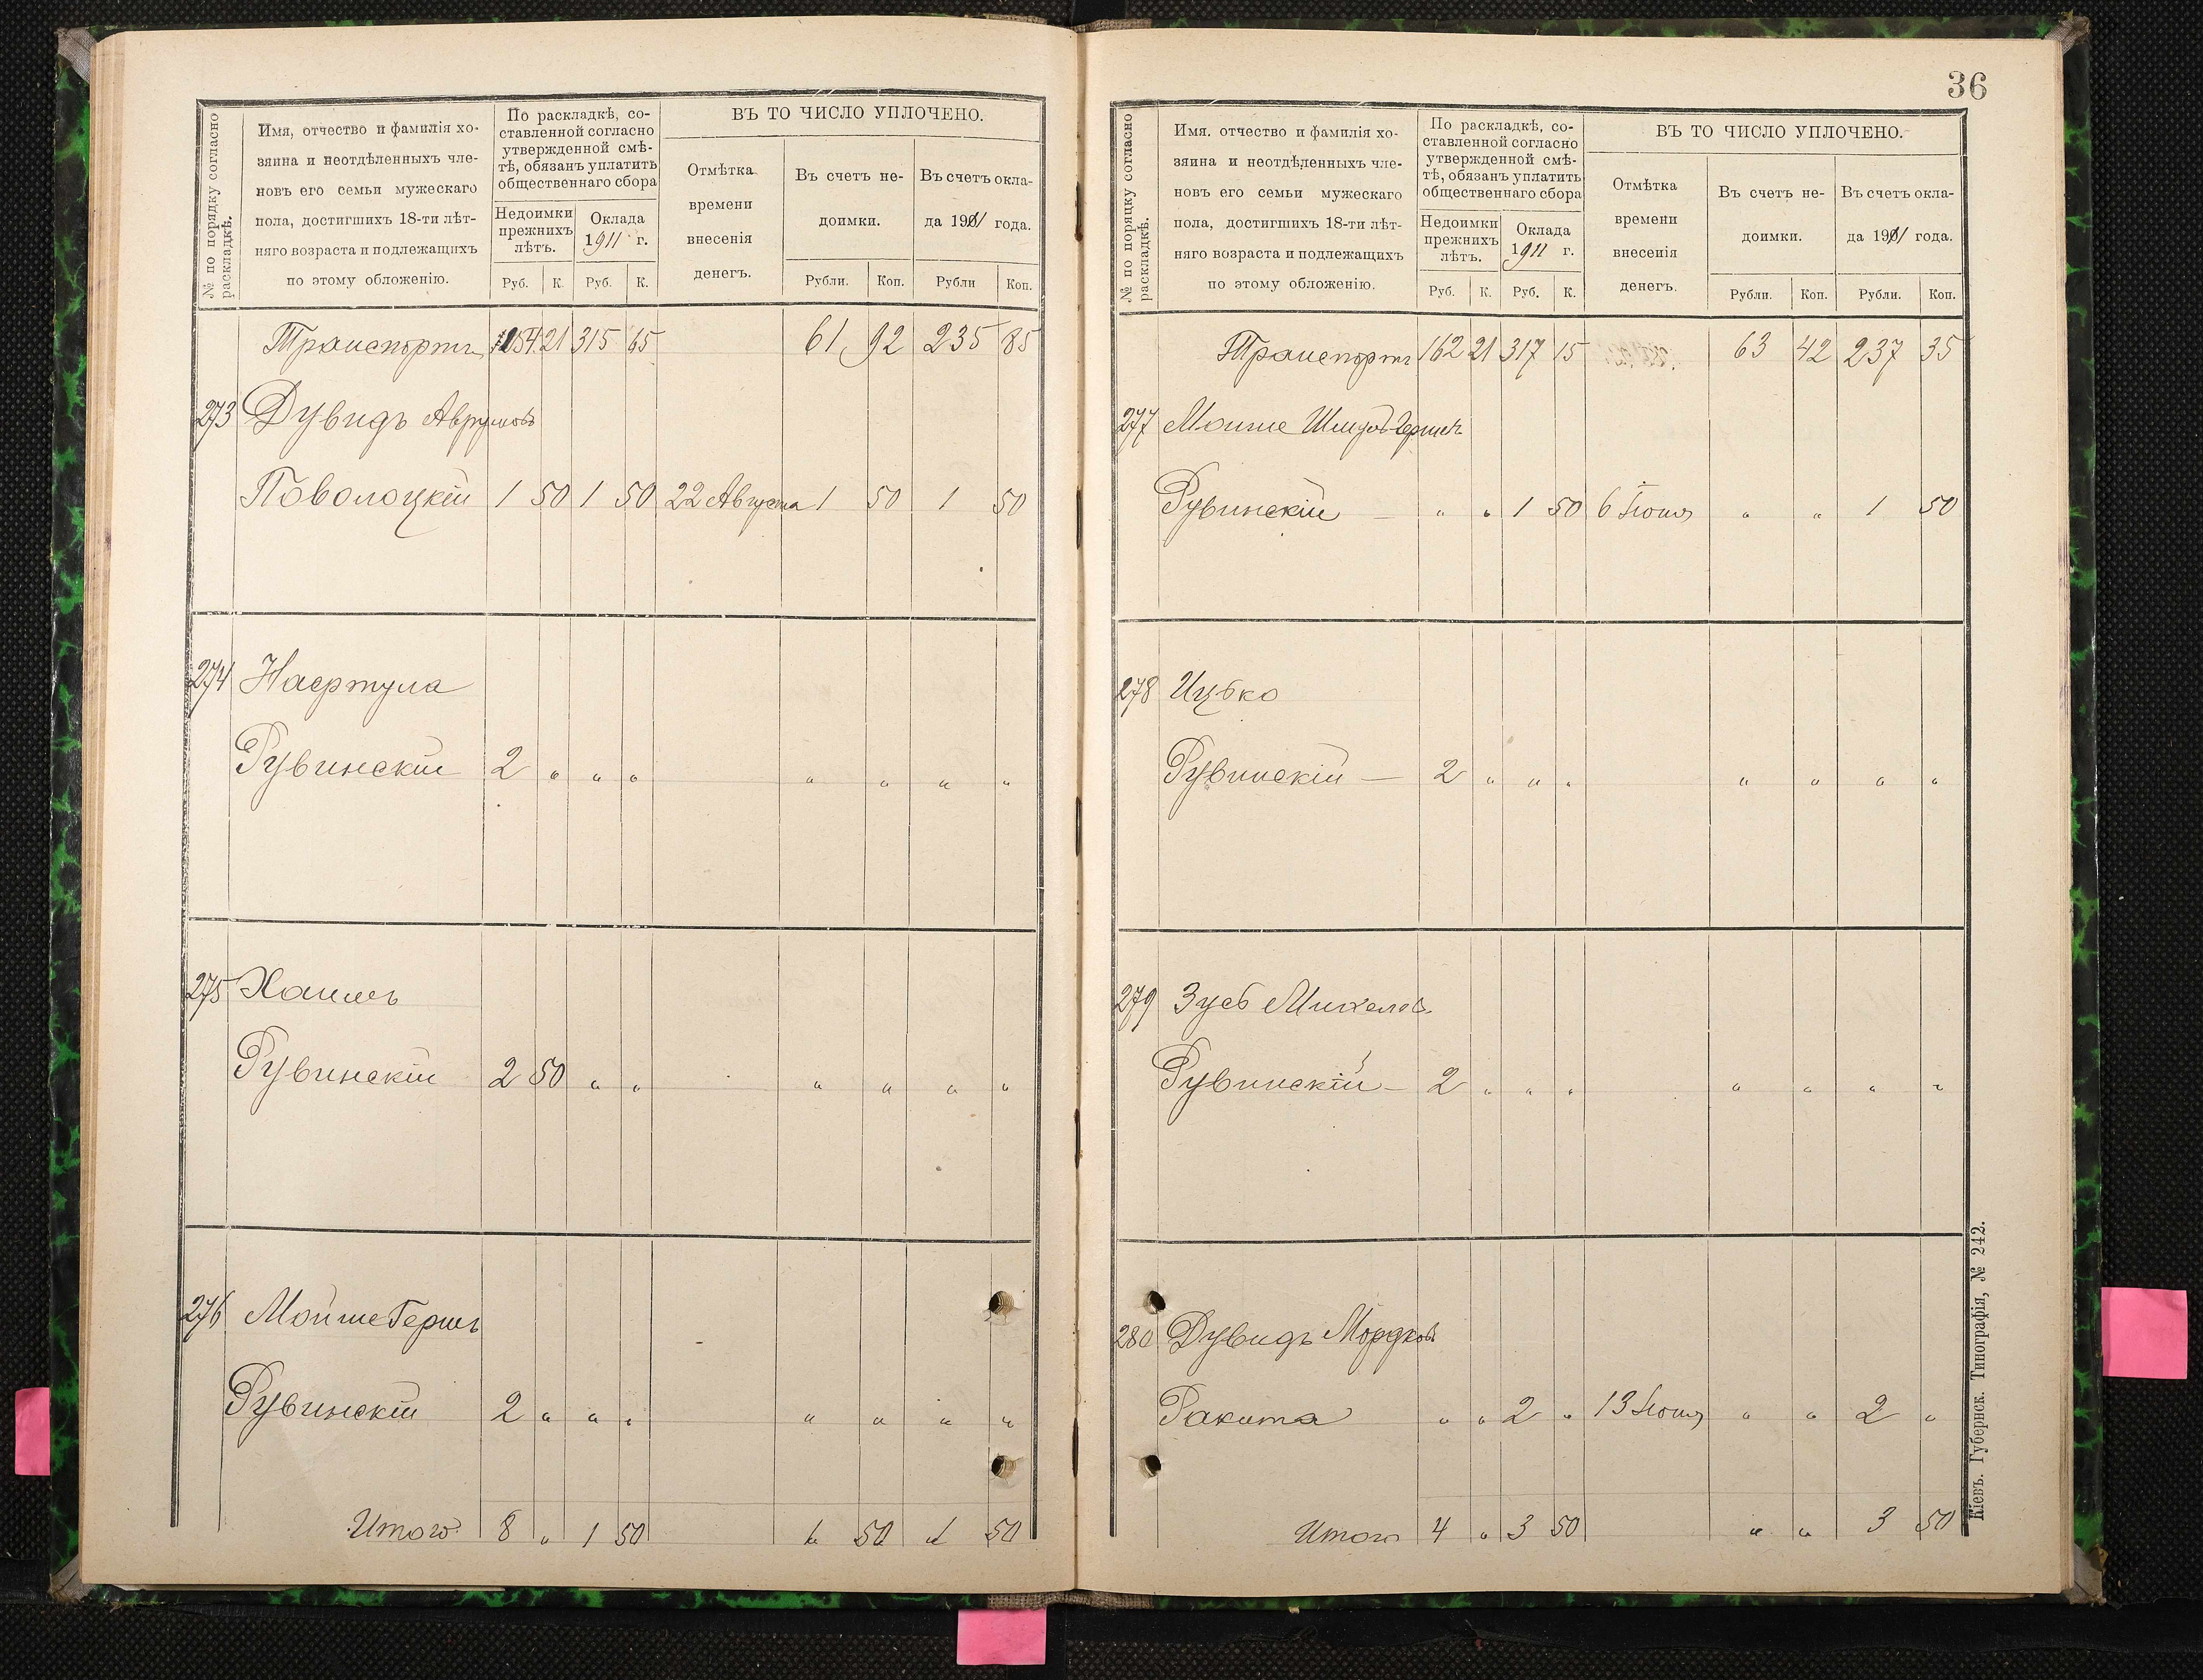 № по порядку согласно раскладкѣ.
Имя, отчество и фамилія хо-
зяина и неотдѣленныхъ чле-
новъ его семьи мужескаго
пола, достигшихъ 18-ти лѣт-
няго возраста и подлежащихъ
по этому обложенію.
По раскладкѣ, со-
ставленной согласно
утвержденной смѣ-
тѣ, обязанъ уплатить
общественнаго сбора
Недоимки прежнихъ лѣтъ.
Оклада 1911 г.
Руб. К. Руб. К.
ВЪ ТО ЧИСЛО УПЛОЧЕНО.
Отмѣтка времени внесенія денегъ.
Въ счетъ не-
доимки.
Въ счетъ окла-
да 1911 года.
Рубли. Коп. Рубли Коп.
Транспортъ 154 21 315 65 61 92 235 85
273 Дувидъ Аврумовъ
Поволоцкій 1 50 1 50 22 Августа 1 50 1 50
274
Рувинскій 2 " " " " " " "
275 Хаимъ
Рувинскій 2 50 " " " " " "
276 Мойше Гершъ
Рувинскій 2 " " " " " " "
Итого 8 " 1 50 1 50 1 50
36
№ по порядку согласно раскладкѣ.
Имя, отчество и фамилія хо-
зяина и неотдѣленныхъ чле-
новъ его семьи мужескаго
пола, достигшихъ 18-ти лѣт-
няго возраста и подлежащихъ
по этому обложенію.
По раскладкѣ, со-
ставленной согласно
утвержденной смѣ-
тѣ, обязанъ уплатить
общественнаго сбора
Недоимки прежнихъ лѣтъ.
Оклада 1911 г.
Руб. К. Руб. К.
ВЪ ТО ЧИСЛО УПЛОЧЕНО.
Отмѣтка времени внесенія денегъ.
Въ счетъ не-
доимки.
Въ счетъ окла-
да 1911 года.
Рубли. Коп. Рубли. Коп.
Транспортъ 162 21 317 15 63 42 237 35
277 Мойше
Рувинскій — " " 1 50 6 " " 1 50
278 Ицко
Рувинскій — 2 " " " " " " "
279 Зусь Михелев.
Рувинскій — 2 " " " " " " "
280 Дувидъ Мордков.
Ракита " " 2 " 13 " " 2 "
Итого 4 " 3 50 " " 3 50
Кіевъ. Губернск. Типографія, № 242.